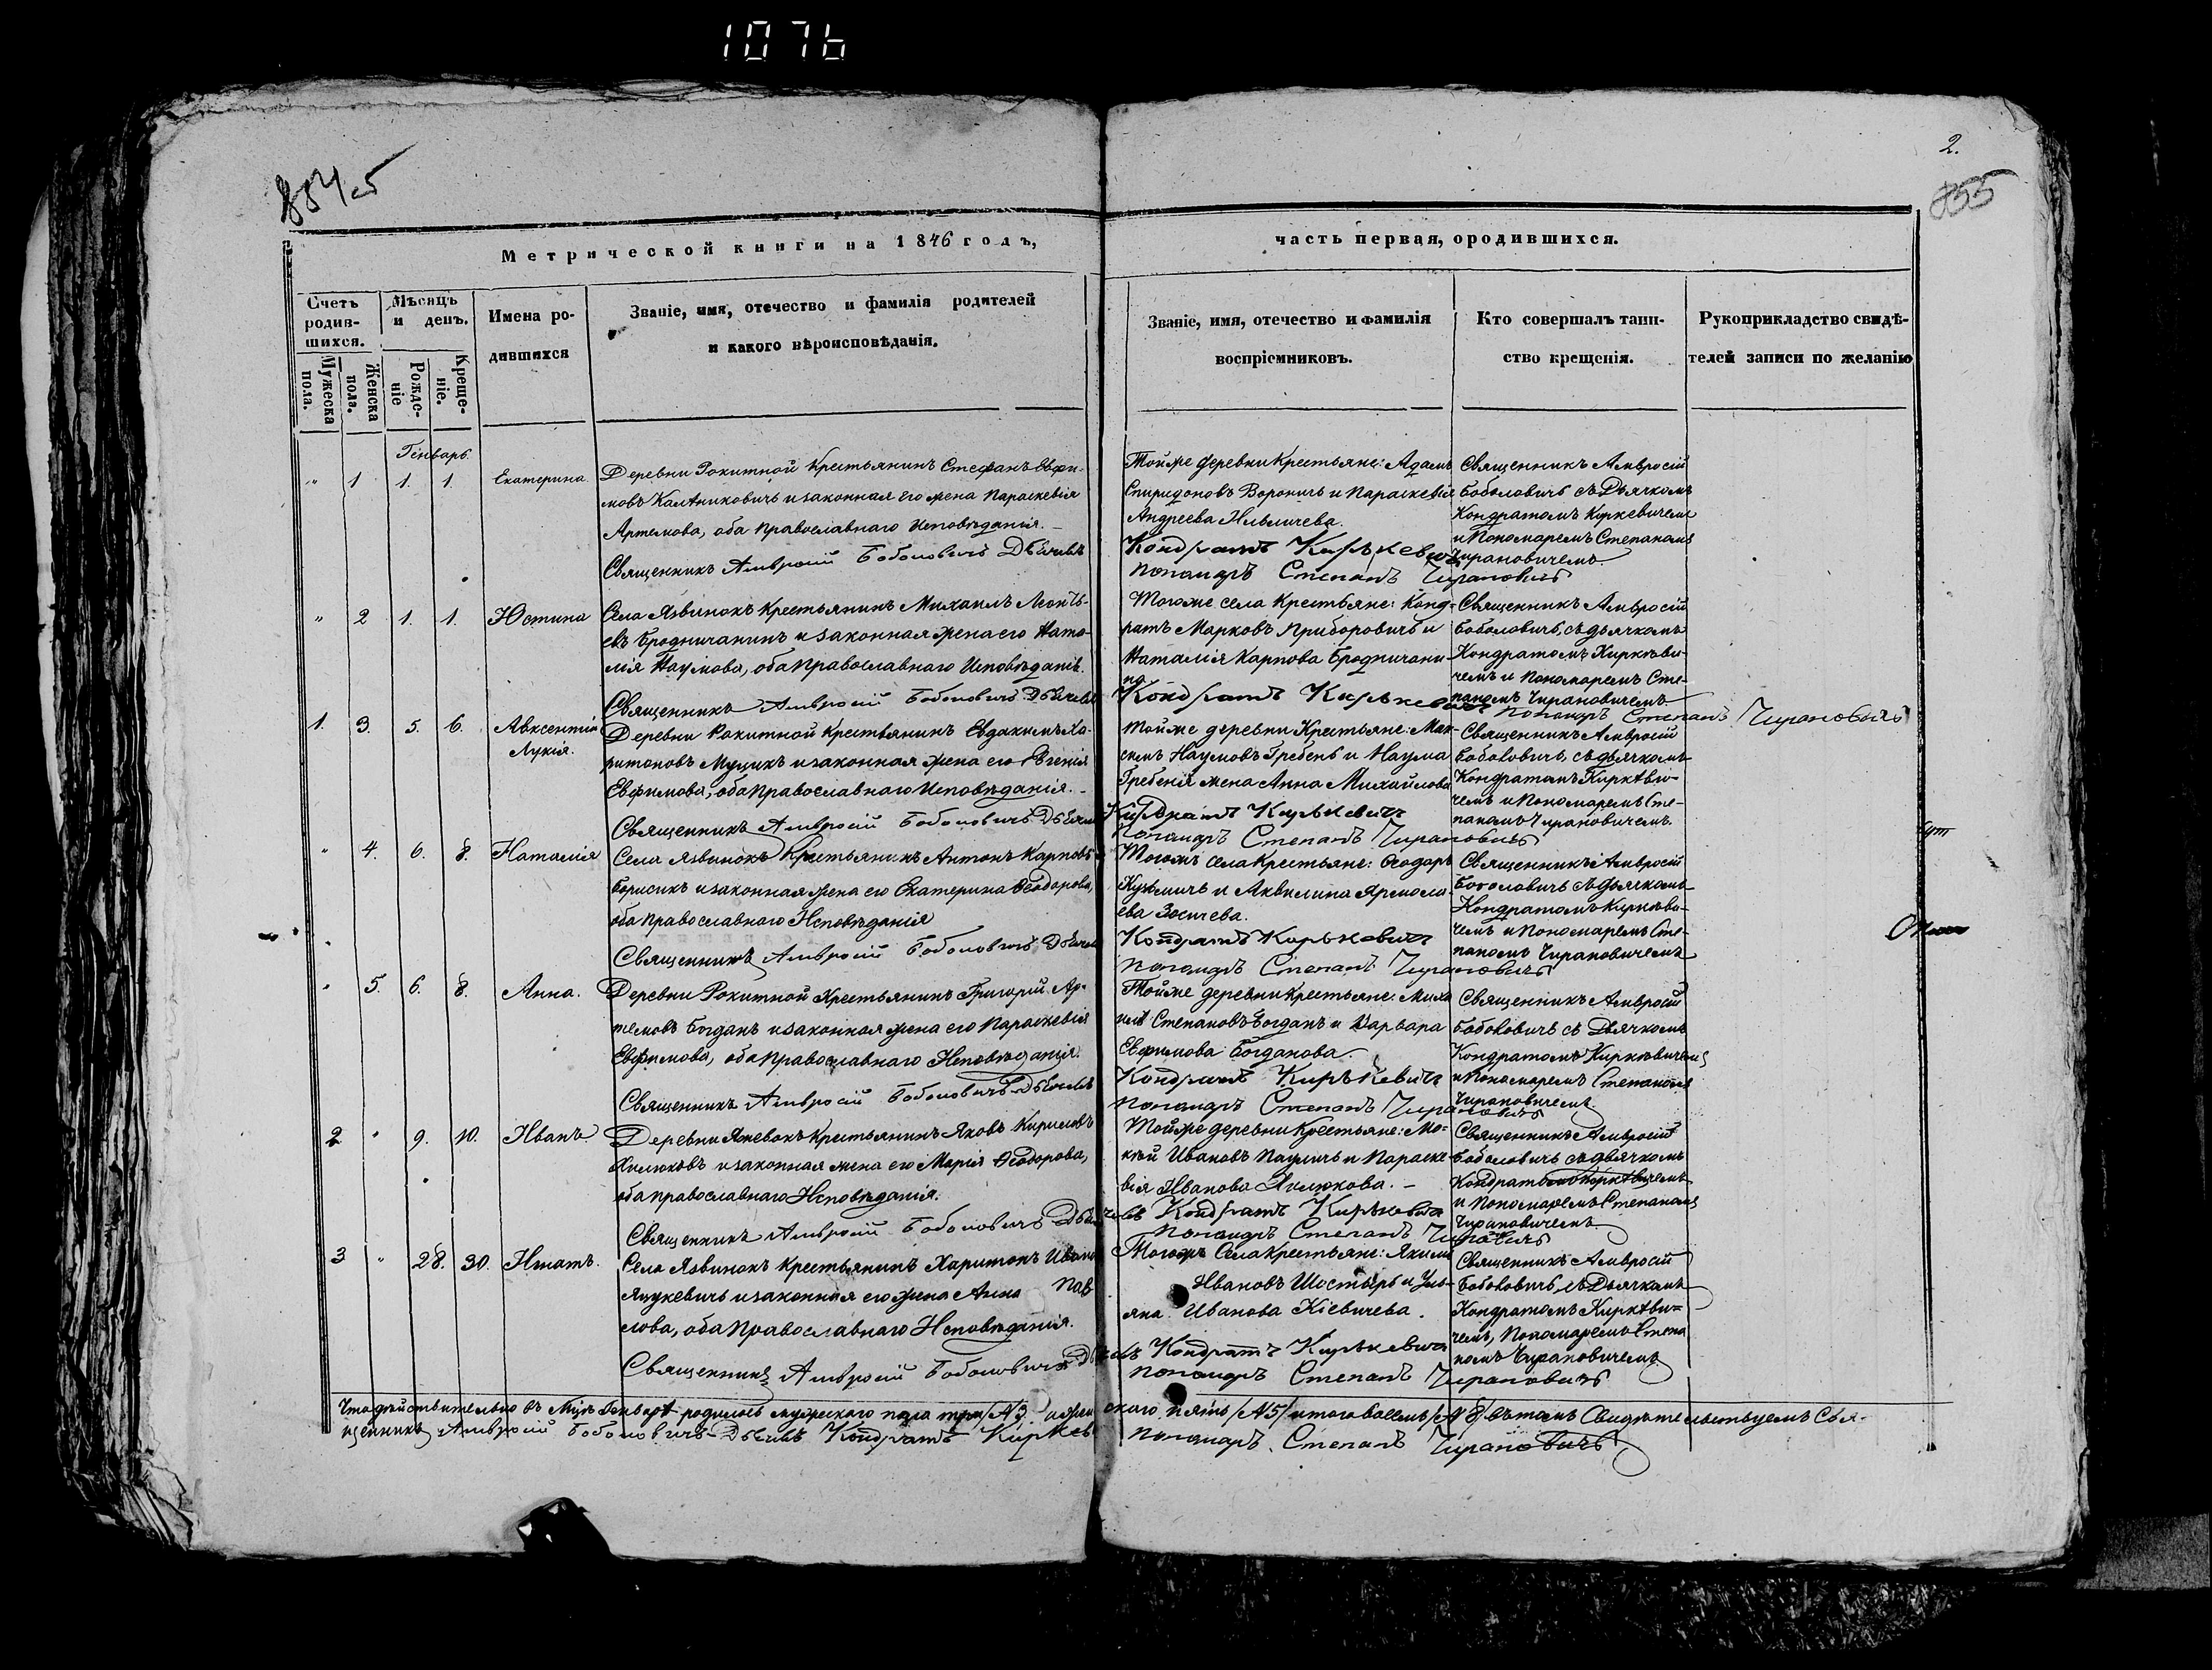 1076
854 об
2.
855
Метрической книги на 1846 годъ,
часть первая, ородившихся.
Счетъ родив-шихся.
Мужеска пола.
Женска пола.
Мѣсяцъ и день.
Рожде-ніе
Креще-ніе.
Имена ро-дившихся
Званіе, имя, отечество и фамилія родителей
и какого вѣроисповѣданія.
Званіе, имя, отечество и фамилія
воспріемниковъ.
Кто совершалъ таин-
ство крещенія.
Рукоприкладство свидѣ-
телей записи по желанію
Генварь.
" 1 1. 1. Екатерина.
Деревни Рокитной Крестьянинъ Стефанъ Евфи-
мовъ Калѣниковичь и законная его жена Параскевія
Артемова, оба православнаго исповѣданія. –
Священникъ Амвросій Боболовичъ Дьячекъ
Тойже деревни Крестьяне: Адамъ
Спиридоновъ Вороничь и Параскевія
Андреева
Кондратъ Кирькевичъ
пономаръ Степанъ Чирановичъ
Священникъ Амвросій
Боболовичь съ Дьячкомъ
Кондратомъ Киркевичемъ
и Пономаремъ Степаномъ
Чирановичемъ.
" 2 1. 1. Юстина
Села Язвинокъ Крестьянинъ Михаилъ Леонть-
евъ Бродничанинъ и законная жена его Ната-
лія Наумова, оба православнаго исповѣданія.
Священникъ Амвросій Боболовичъ Дьячекъ
Тогоже села Крестьяне: Конд-
ратъ Марковъ Приборовичь и
Наталія Карпова Бродничани-
на
Кондратъ Кирькевичъ
пономаръ Степанъ Чирановичъ
Священникъ Амвросій
Боболовичь, съ дьячкомъ
Кондратомъ Киркѣви-
чемъ и Пономаремъ Сте-
паномъ Чирановичемъ.
1. 3. 5. 6. Авксентій
Лукія.
Деревни Рокитной Крестьянинъ Евдакимъ Ха-
ритоновъ Муцикъ и законная жена его Евгенія
Евфимова, оба православнаго исповѣданія. –
Священникъ Амвросій Боболовичъ Дьячекъ
Тойже деревни Крестьяне: Мак-
симъ Наумовъ Гребень и Наума
Гребеня жена Анна Михайлова
Кирькевичъ
Пономаръ Степанъ Чирановичъ
Священникъ Амвросій
Боболовичь, съ дьячкомъ
Кондратомъ Киркѣви-
чемъ и Пономаремъ Сте-
паномъ Чирановичемъ.
" 4. 6. 8. Наталія
Села Язвинокъ Крестьянинъ Антонъ Карповъ
Борисикъ и законная жена его Екатерина Ѳеодорова,
оба православнаго Исповѣданія
Священникъ Амвросій Боболовичъ Дьячекъ
Тогожъ села Крестьяне: Ѳеодоръ
Кузьмичь и Аквилина Ярмола-
ева Зосичева.
Кондратъ Кирькевичъ
пономаръ Степанъ Чирановичъ
Священникъ Амвросій
Боболовичь съ дьячкомъ
Кондратомъ Киркѣви-
чемъ и Пономаремъ Сте-
паномъ Чирановичемъ
" 5. 6. 8. Анна.
Деревни Рокитной Крестьянинъ Григорій Ар-
темовъ Богданъ и законная жена его Параскевія
Евфимова, оба православнаго Исповѣданія.
Священникъ Амвросій Боболовичъ Дьячекъ
Тойже деревни Крестьяне: Миха
илъ Степановъ Богданъ и Варвара
Евфимова Богданова.
Кондратъ Кирькевичъ
пономаръ Степанъ Чирановичъ
Священникъ Амвросій
Боболовичь съ Дьячкомъ
Кондратомъ Киркѣвичемъ
и Пономаремъ Степаномъ
Чирановичемъ.
2 " 9. 10. Иванъ
Деревни Яжевокъ Крестьянинъ Яковъ Кириловъ
Хилюковъ и законная жена его Марія Ѳеодорова,
оба православнаго Исповѣданія.
Священникъ Амвросій Боболовичъ Дьячекъ
Тойже деревни Крестьяне: Мо-
кѣй Ивановъ Паумичь и Параске-
вія Иванова Хилюкова. –
Кондратъ Кирькевичъ
Пономаръ Степанъ Чирановичъ
Священникъ Амвросій
Боболовичь съ дьячкомъ
Кондратомъ Киркѣвичемъ
и Пономаремъ Степаномъ
Чирановичемъ.
3 " 28. 30. Игнатъ.
Села Язвинокъ Крестьянинъ Харитонъ Ивановъ
Янукевичь и законная его жена Анна Пав-
лова, оба православнаго Исповѣданія.
Священникъ Амвросій Боболовичъ Дьячекъ
Тогожъ Села Крестьяне: Якимъ
Ивановъ Шостыръ и Уль-
яна Иванова Кіевичева.
Кондратъ Кирькевичъ
пономаръ Степанъ Чирановичъ
Священникъ Амвросій
Боболовичь, съ Дьячкомъ
Кондратомъ Киркѣви-
чемъ, Пономаремъ Степа
номъ Чирановичемъ
Что дѣйствительно въ М-цѣ Генварѣ родилось мужескаго пола три /№ 3. а женскаго пять /№ 5/ итого восемь /№ 8/ въ томъ Свидѣтельствуемъ Свя-
щенникъ Амвросій Боболовичъ – Дьячекъ Кондратъ Киркев пономаръ Степанъ Чирановичъ